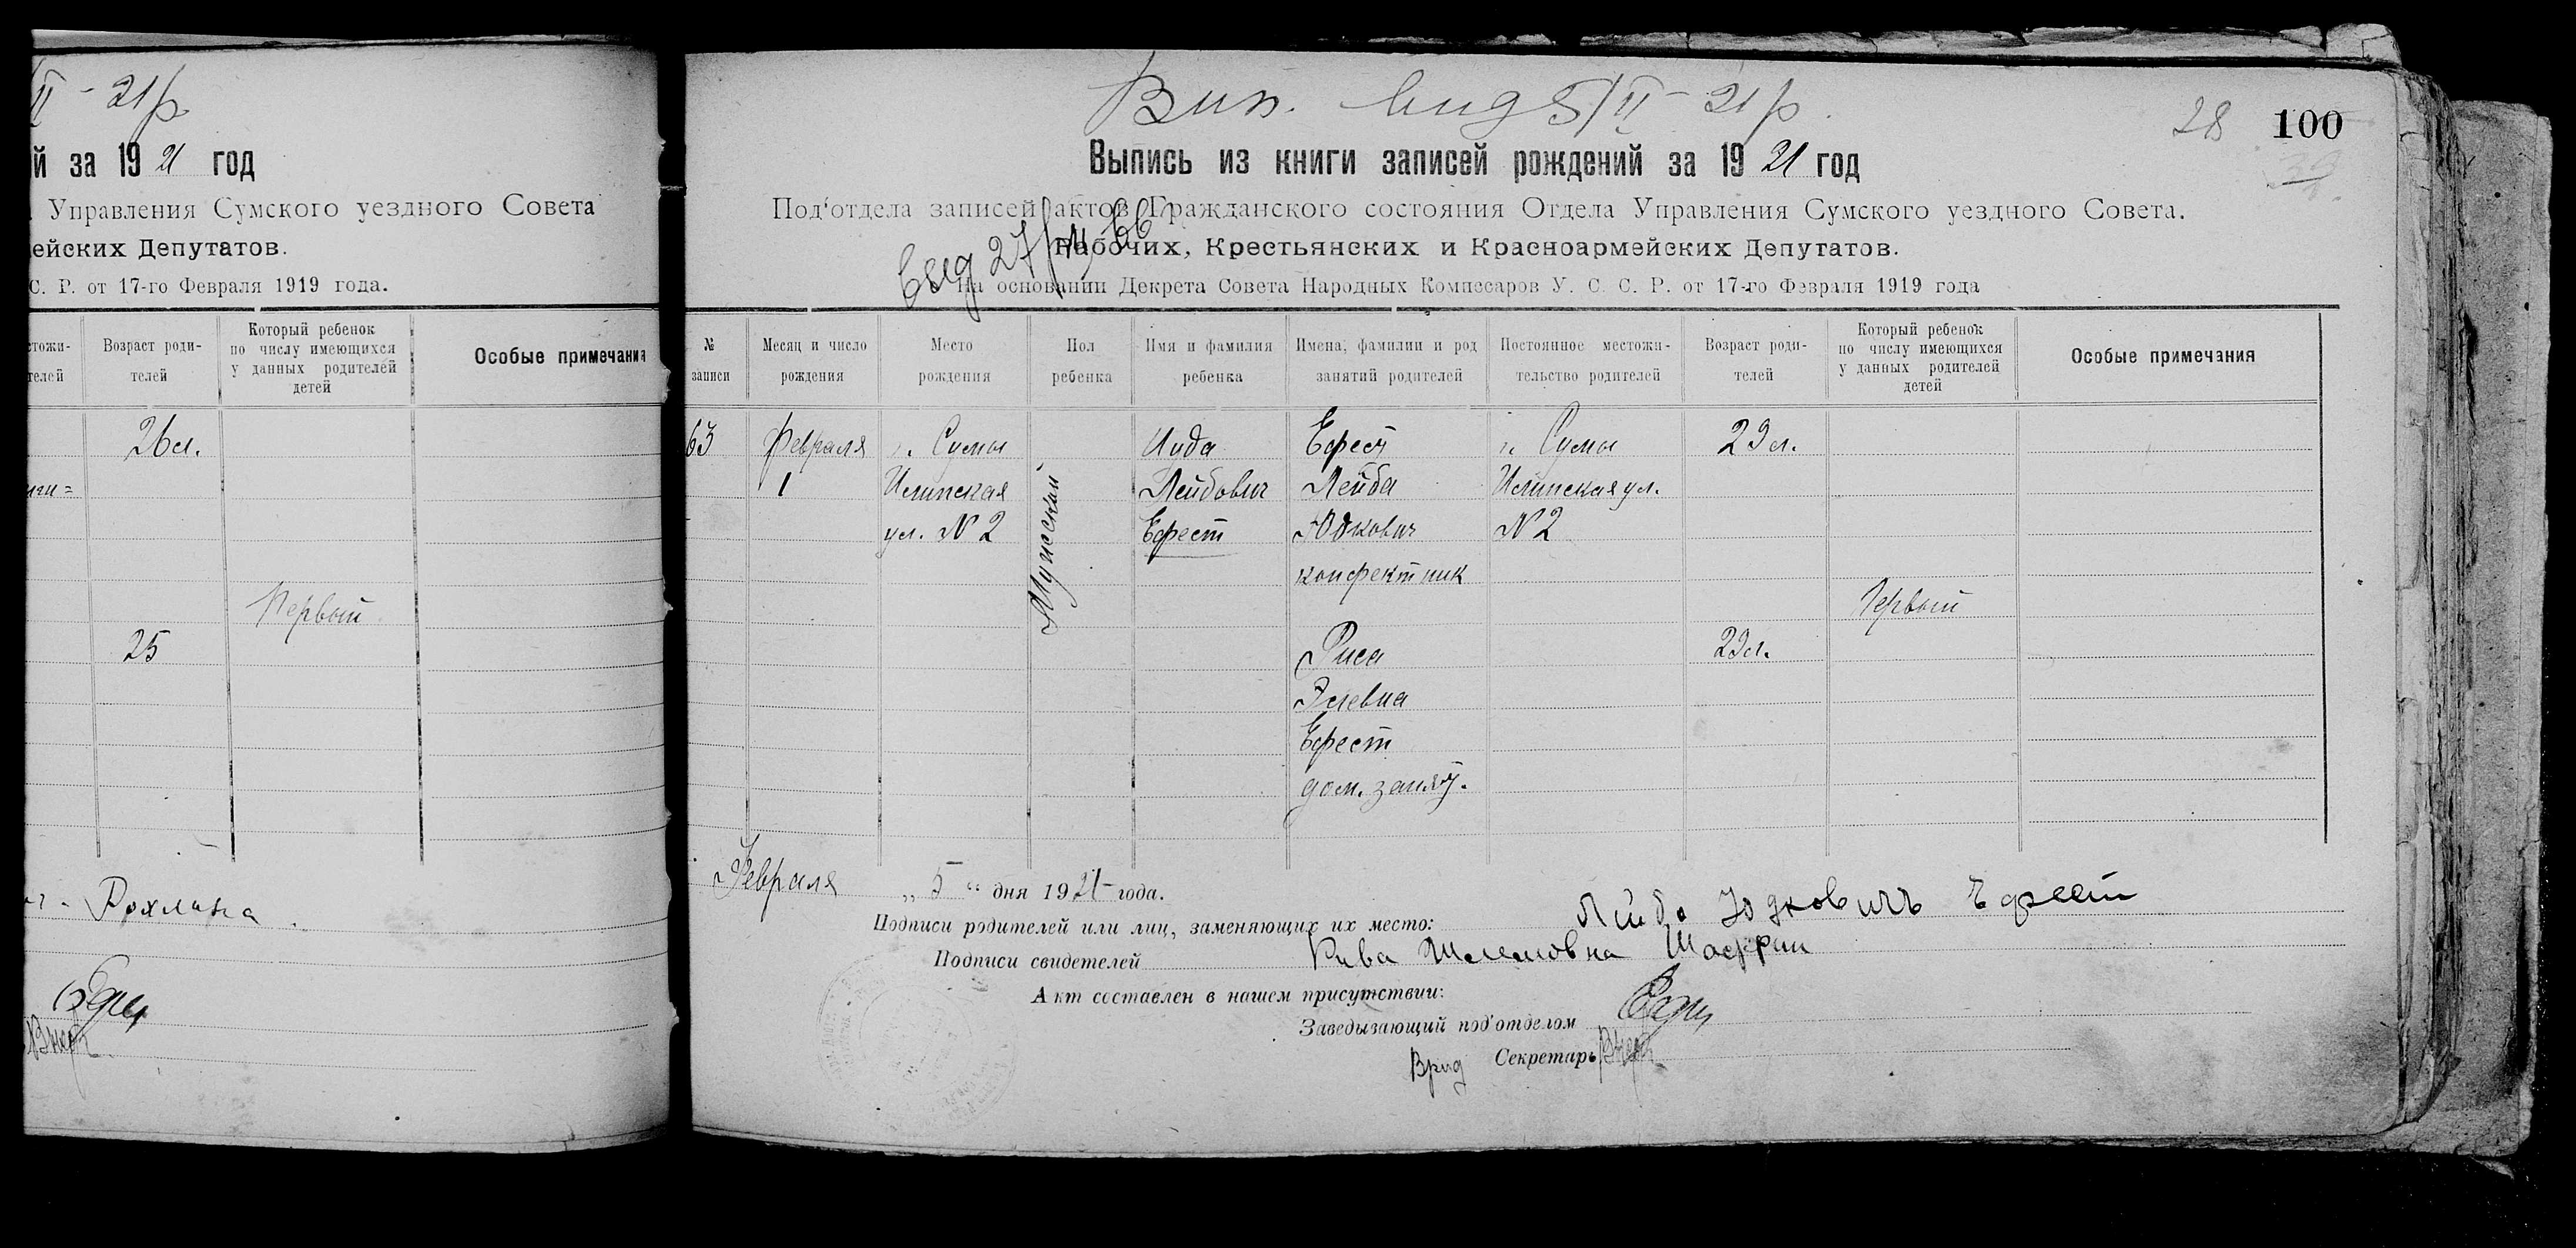 II - 21 р
й за 1921 год
Управления Сумского уездного Совета
ейских Депутатов.
С. Р. от 17-го Февраля 1919 года.
стожи-
телей
Возраст роди-
телей
Который ребенок
по числу имеющихся
у данных родителей
детей
Особые примечания
26 л.
25
Первый
Рохлина
Вип. 5/II - 21 р.
28 100
Выпись из книги записей рождений за 1921 год
Под'отдела записей актов Гражданского состояния Отдела Управления Сумского уездного Совета.
Рабочих, Крестьянских и Красноармейских Депутатов.
На основании Декрета Совета Народных Комиссаров У. С. С. Р. от 17-го Февраля 1919 года
№
записи
Месяц и число
рождения
Место
рождения
Пол
ребенка
Имя и фамилия
ребенка
Имена, фамилии и род
занятий родителей
Постоянное местожи-
тельство родителей
Возраст роди-
телей
Который ребенок
по числу имеющихся
у данных родителей
детей
Особые примечания
63
Февраля
1
г. Сумы
Илинская
ул. № 2
Мужеский
Иуда
Лейбович
Ефест
Ефест
Лейба
Юдкович
конфектник
Риса
Элевна
Ефест
дом. занят.
г. Сумы
Илинская ул.
№ 2
29 л.
29 л.
Первый
Февраля „ 5 “ дня 1921 года.
Подписи родителей или лиц, заменяющих их место: Лейба Юдковичъ Ефест
Подписи свидетелей Рива Шлемовна Шафран
Акт составлен в нашем присутствии:
Заведывающий под'отделом
Врид Секретарь